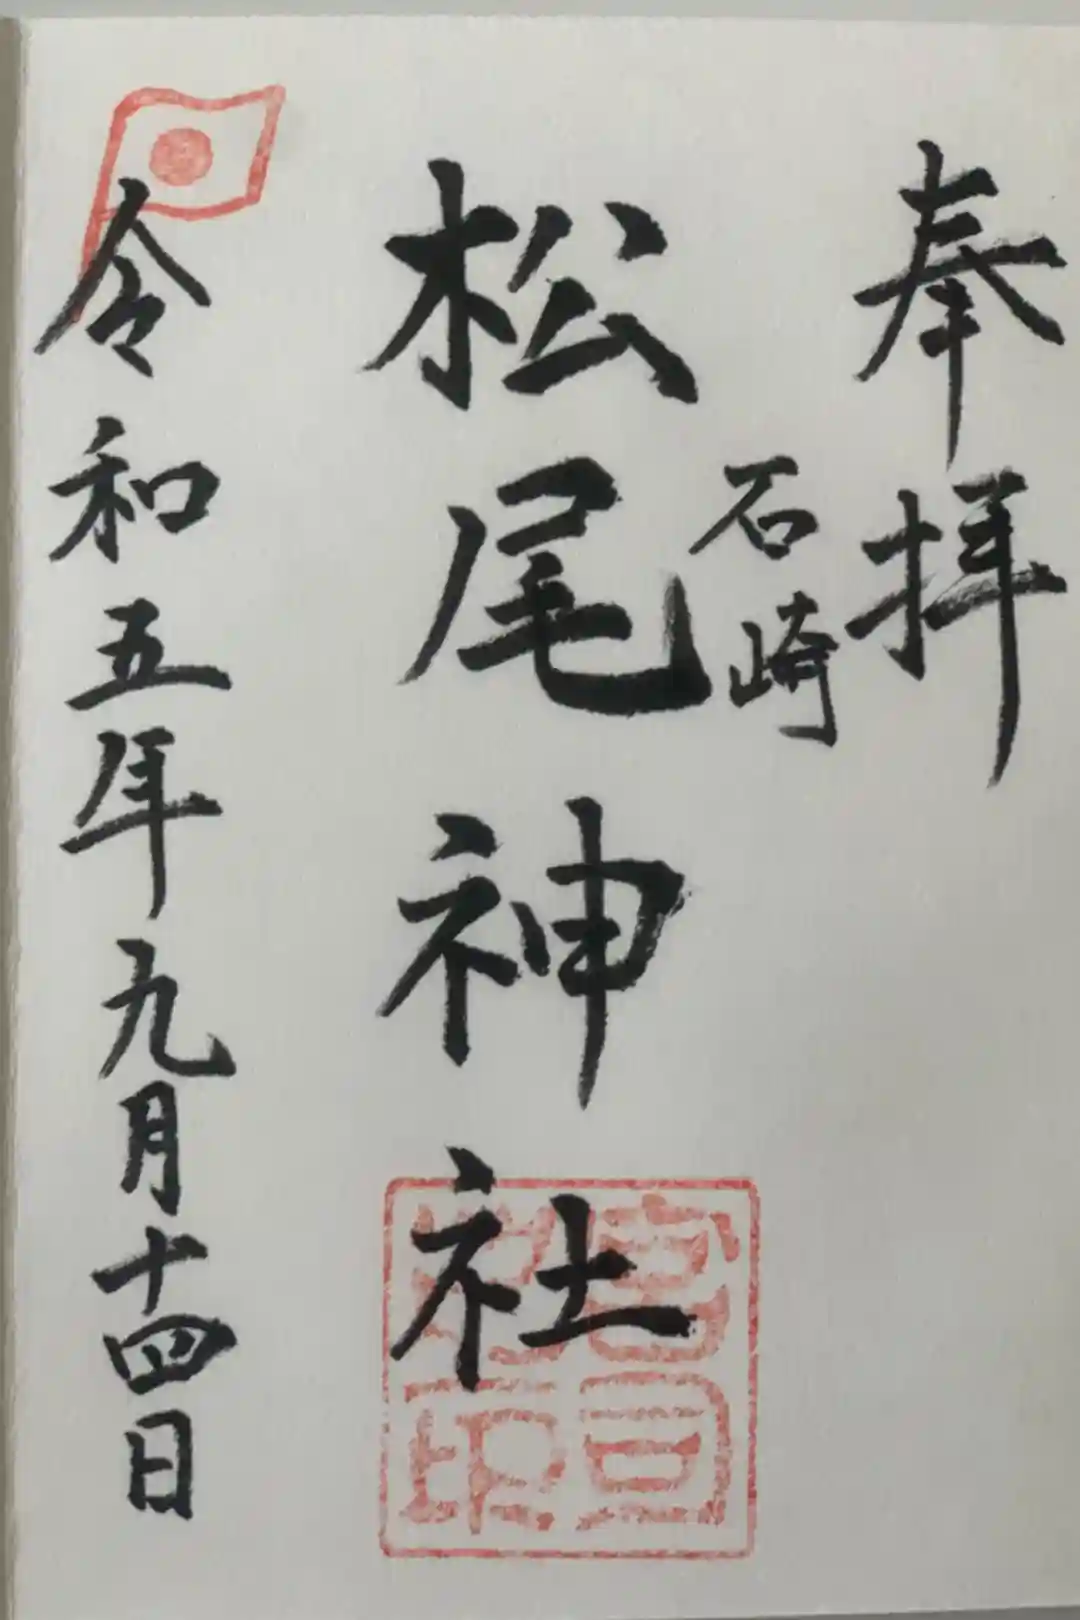 奉拝
石崎
松尾神社
令和五年九月十四日
宮司之印